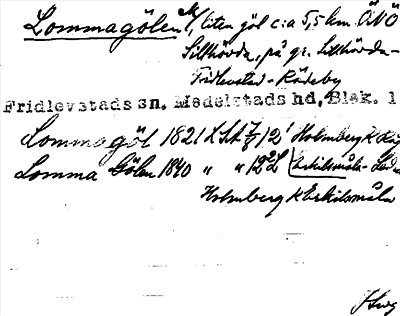 Lommagölen, liten göl c:a 5,5 km ÖNÖ
Sillhövda, på gr. Sillhövda-
Fridlevstad-Rödeby
Fridlevstads sn. Medelstads hd, Blek. l
Lommagöl 1821 12 Holmberg
Lomma Gölen 1840 " " 12
Holmberg Eskilsmåla